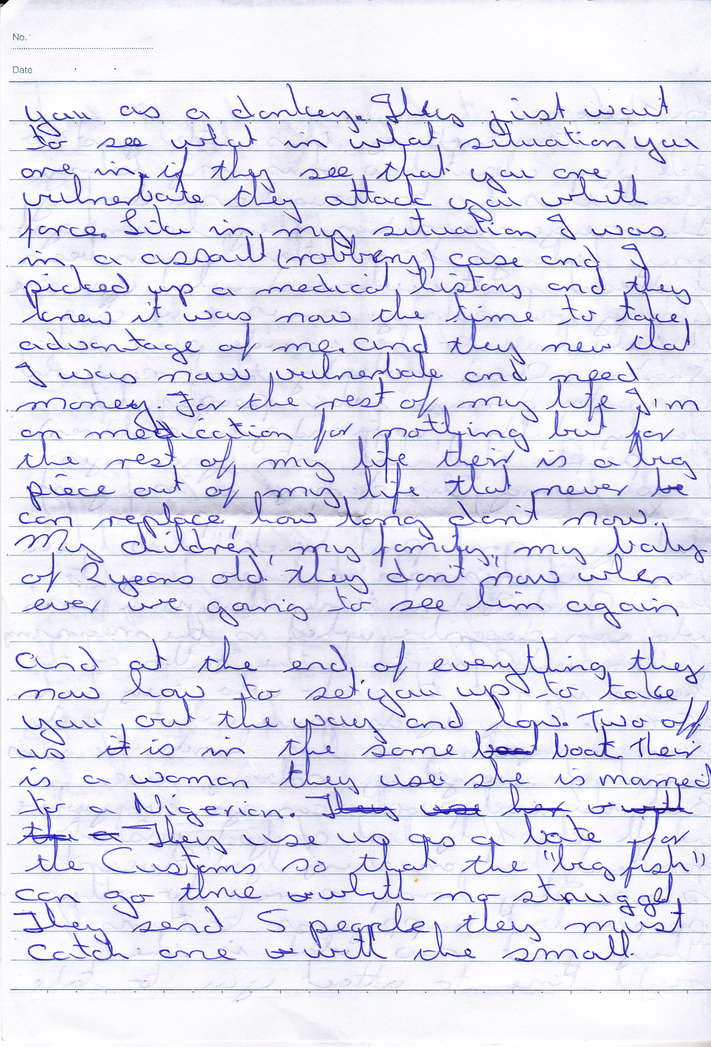 No.
Date
you as a donkey. They just wait
to see what in what situation you
are in, if they see that you are
vulnerbate they attack you whith
force. Like in my situation I was
in a assault (robbery) case and I
picked up a medical history and they
knew it was now the time to take
advantage of me. And they new that
I was now vulnerbate and need
money. For the rest of my life I'm
on medication for nothing but for
the rest of my life their is a big
piece out of my life that never be
can replace, how long don't now.
My children, my family, my baby
of 2 years old they don't now when
ever we going to see him again
And at the end of everything they
now how to set you up to take
you out the way and how. Two off
us it is in the same boat. Their
is a woman they use she is married
to a Nigerian. They use her
They use us as a bate for
the Customs so that the "big fish"
can go thru whith no struggel
They send 5 people, they must
catch one with the small.